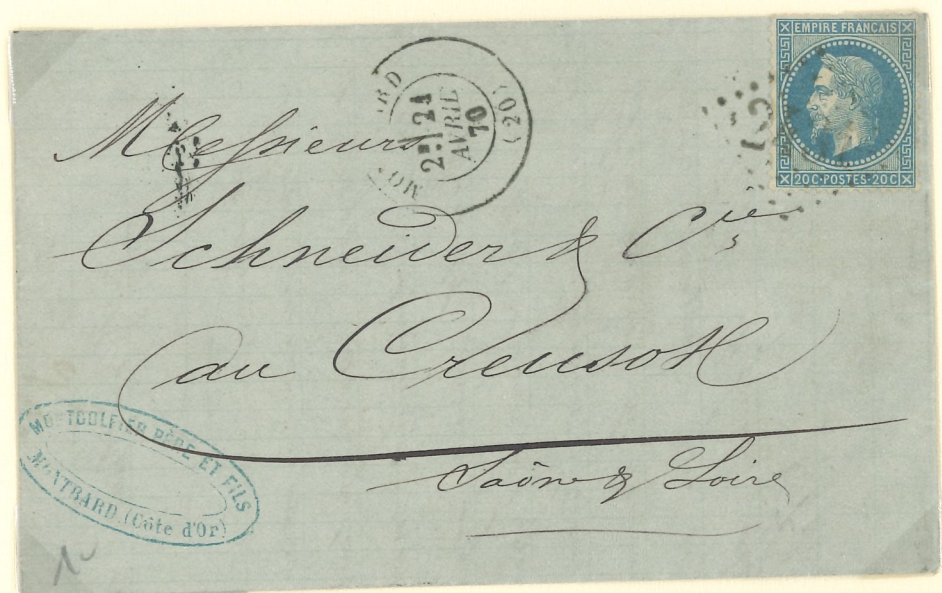 EMPIRE FRANÇAIS
20C·POSTES·20C
(20)
2E/21
AVRIL
70
Messieurs
Schneider & Cie
au Creusot
Saône & Loire
MONTGOLFIER PÈRE ET FILS
MONTBARD (Côte d'Or)